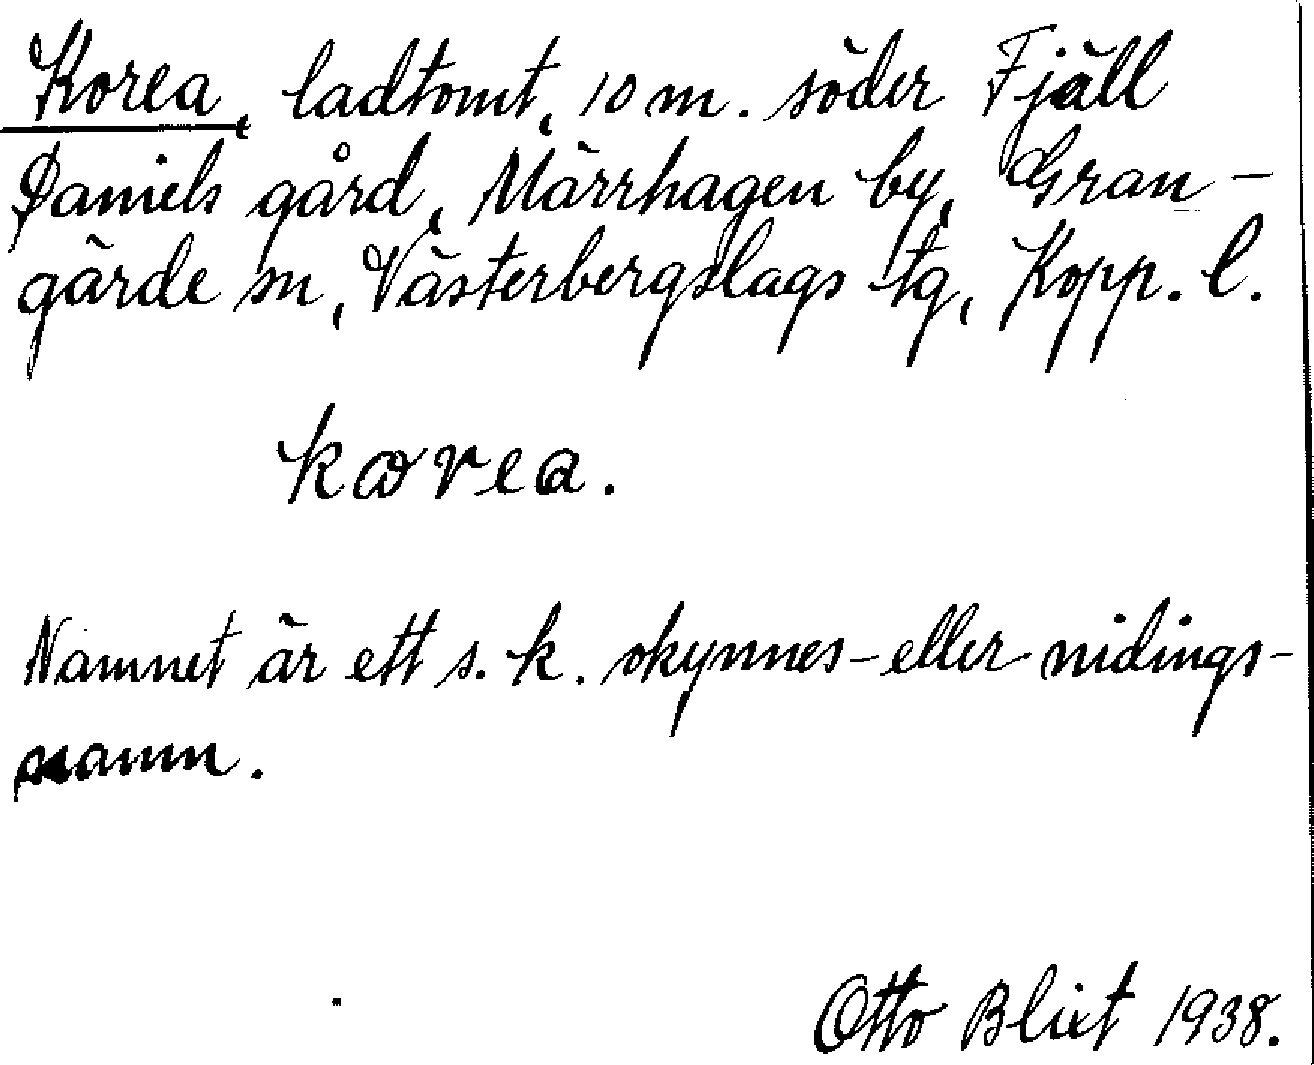 Korea, ladtomt, 10 m. söder Fjäll
Daniels gård, Märrhagen by, Gran-
gärde sn, Västerbergslags tg, Kopp. l.
korea.
Namnet är ett s. k. okynnes- eller nidings-
namn.
Otto Blixt 1938.